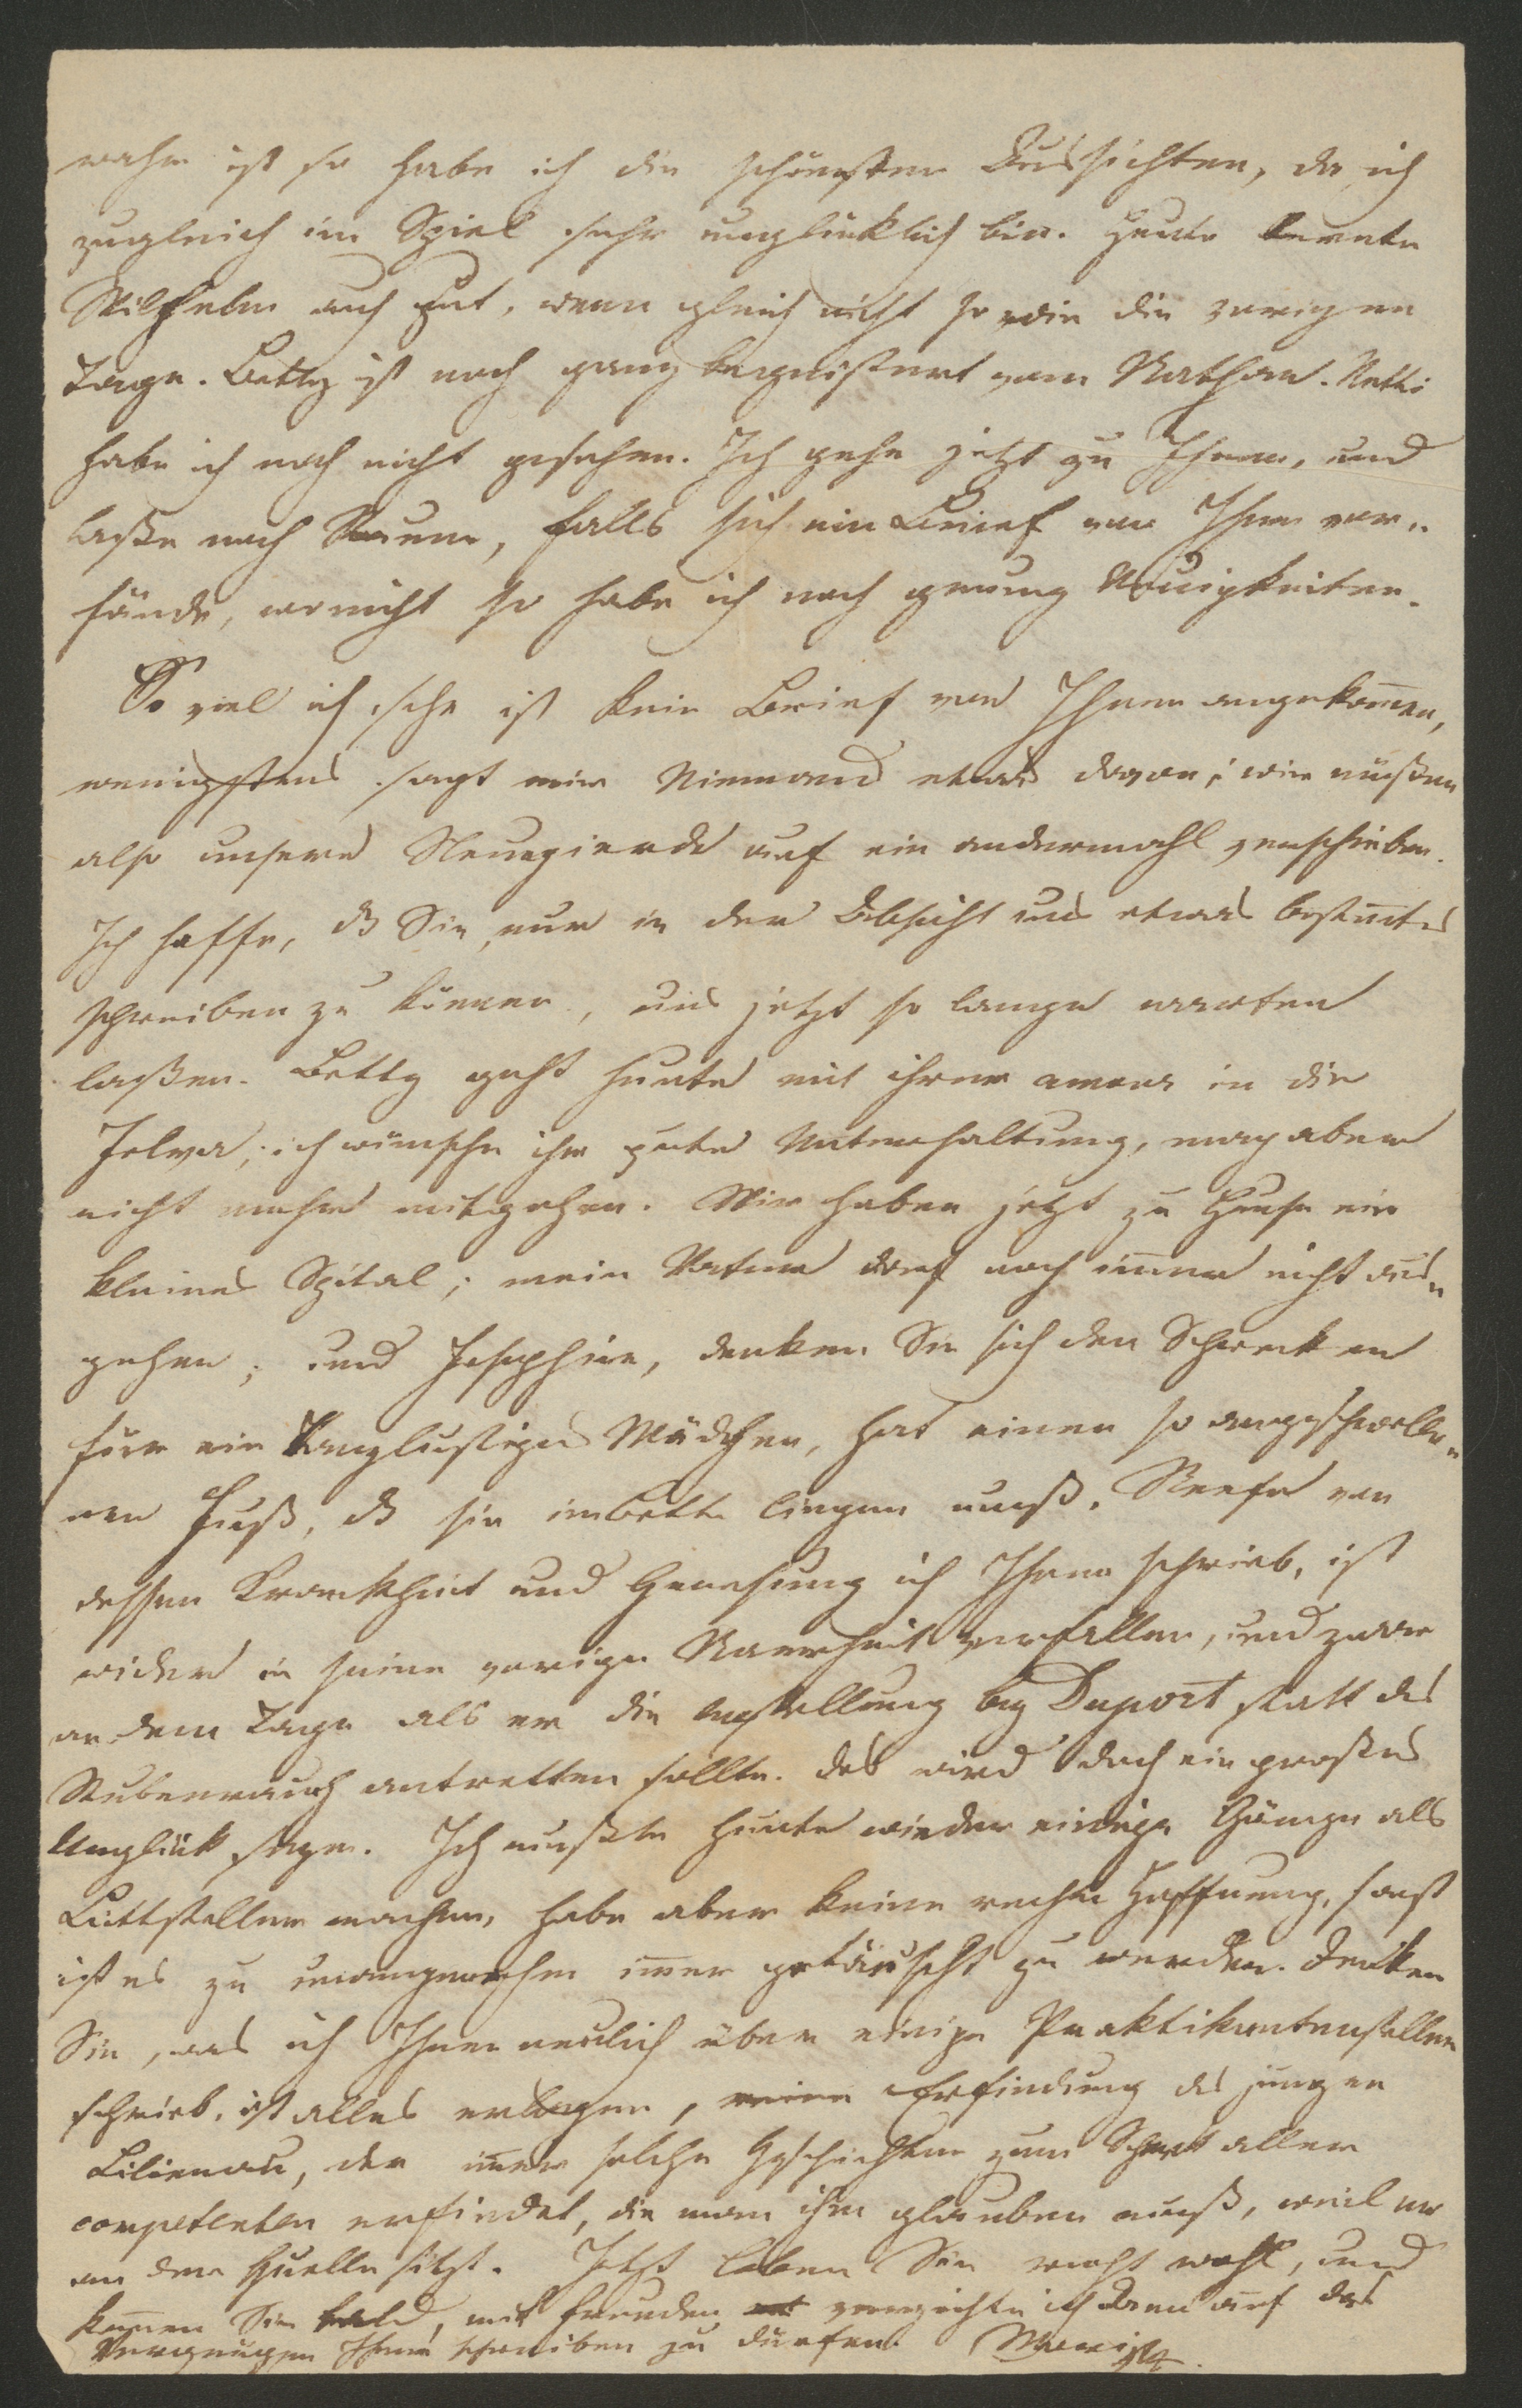 wahr ist so habe ich die schönsten Aussichten, da ich
zugleich im Spiel sehr unglücklich bin. Heute lernte
Wilhelm auch gut, wenn gleich nicht so wie die vorigen
Tage. Betty ist noch ganz begeistert vom Nathan. Netti
habe ich noch nicht gesehen. Ich gehe jetzt zu Ihnen, und
laße noch Raum, falls sich ein Brief von Ihnen vor„
fände, wo nicht so habe ich noch genug Neuigkeiten.
So viel ich sehe ist kein Brief von Ihnen angekom̅en,
wenigstens sagt mir Niemand etwas davon; wir müßen
also unsere Neugierde auf ein andermahl verschieben.
Ich hoffe, dß Sie, nur in der Absicht uns etwas bestim̅tes
schreiben zu können, uns jetzt so lange warten
laßen. Betty geht heute mit ihrem amour in die
Jelva; ich wünsche ihr gute Unterhaltung, mag aber
nicht mehr mitgehen. Wir haben jetzt zu Hause ein
kleines Spital; mein Vater darf noch im̅er nicht aus„
gehen; und Josephine, denken Sie sich den Schrecken
für ein tanzlustiges Mädchen, hat einen so angeschwolle„
nen Fuß, dß sie im Bette liegen muß. von
dessen Krankheit und Genesung ich Ihnen schrieb, ist
wider in seine vorige Narrheit verfallen, und zwar
an dem Tage als er die Anstellung bey Duport statt des
Stubenrauch antretten sollte. Das wird doch ein großes
Unglück seyn. Ich mußte heute wieder einige Gänge als
Bittsteller machen, habe aber keine rechte Hoffnung, sonst
ist es zu unangenehm im̅er getäuscht zu werden. Denken
Sie, was ich Ihnen neulich über einige Praktikantenstellen
schrieb, ist alles erlogen, reine Erfindung des jungen
Lilienau, der im̅er solche Geschichten zum Schreck aller
competenten erfindet, die man ihm glauben muß, weil er
an der Quelle sitzt. Jetzt leben Sie recht wohl, und
kom̅en Sie bald, mit Freuden verzichte ich dann auf das
Vergnügen Ihnen schreiben zu dürfen. Moritz